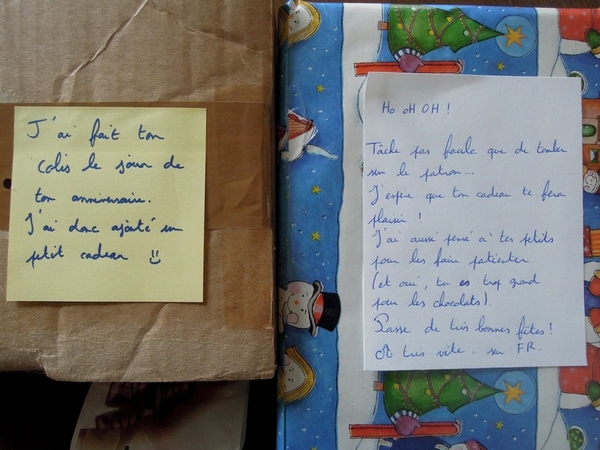 J'ai fait ton
colis le jour de
ton anniversaire.
J'ai donc ajouté un
petit cadeau
Ho oH OH !
Tâche pas facile que de tomber
sur le patron...
J'espère que ton cadeau te fera
plaisir !
J'ai aussi pensé à tes petits
pour les faire patienter
(et oui, tu es trop grand
pour les chocolats).
Passe de très bonnes fêtes !
A très vite.. sur FR.